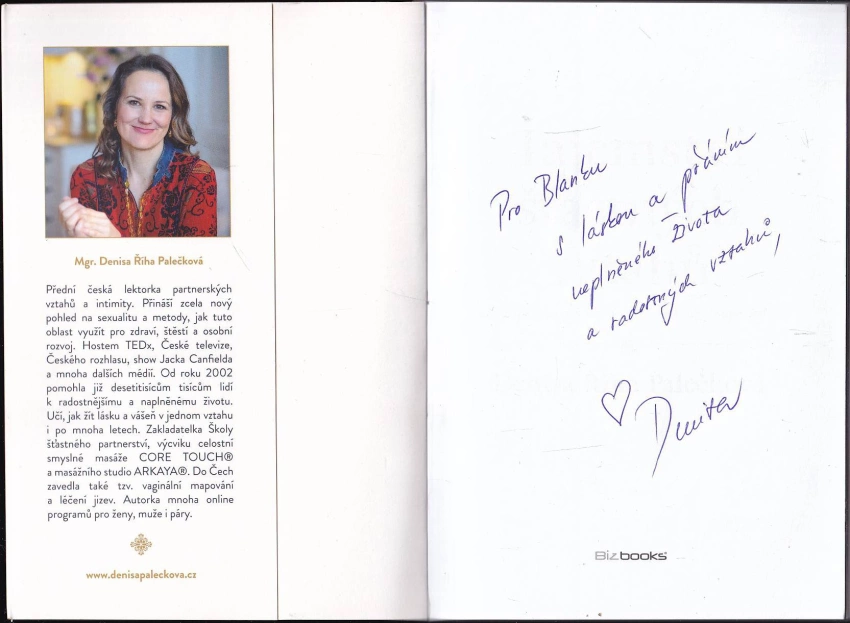 Mgr. Denisa Říha Palečková
Přední česká lektorka partnerských
vztahů a intimity. Přináší zcela nový
pohled na sexualitu a metody, jak tuto
oblast využít pro zdraví, štěstí a osobní
rozvoj. Hostem TEDx, České televize,
Českého rozhlasu, show Jacka Canfielda
a mnoha dalších médií. Od roku 2002
pomohla již desetitisícům tisícům lidí
k radostnějšímu a naplněnému životu.
Učí, jak žít lásku a vášeň v jednom vztahu
i po mnoha letech. Zakladatelka Školy
šťastného partnerství, výcviku celostní
smyslné masáže CORE TOUCH®
a masážního studio ARKAYA®. Do Čech
zavedla také tzv. vaginální mapování
a léčení jizev. Autorka mnoha online
programů pro ženy, muže i páry.
www.denisapaleckova.cz
Pro Blanku
s láskou a přáním
naplněného života
a radostných vztahů,
Denisa
Bizbooks